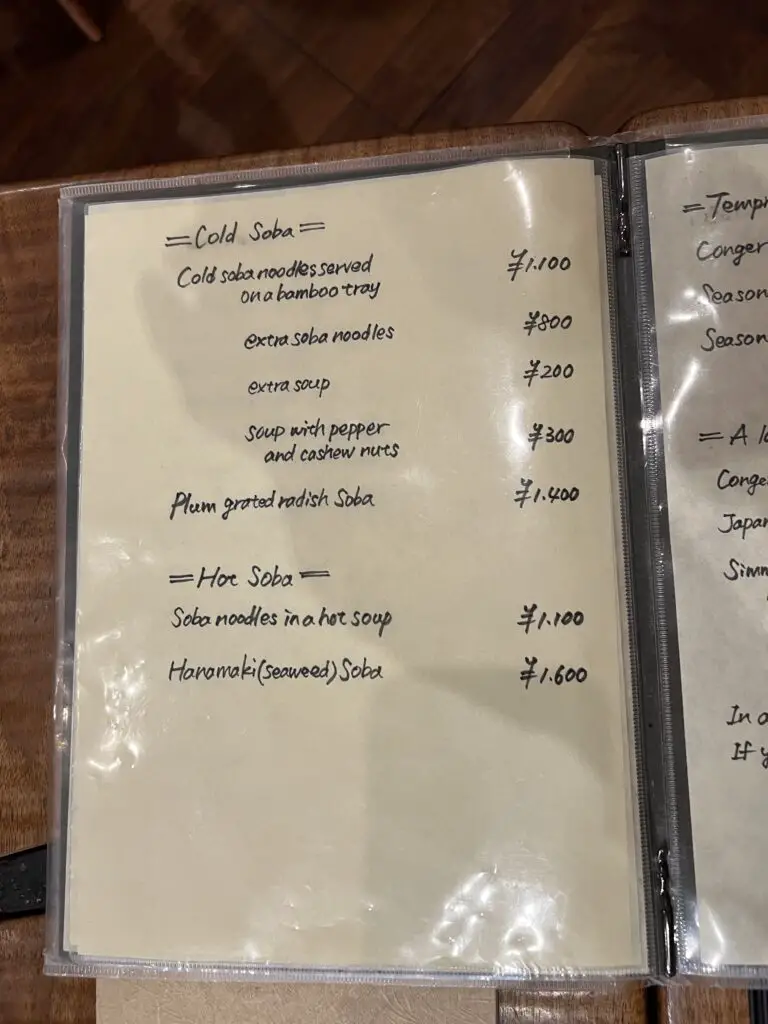 =Cold Soba=
Cold soba noodles served ¥1.100
on a bamboo tray
extra soba noodles ¥800
extra soup ¥200
soup with pepper ¥300
and cashew nuts
Plum grated radish Soba ¥1.400
=Hot Soba=
Soba noodles in a hot soup ¥1.100
Hanamaki(seaweed)Soba ¥1.600
=Temp
Conger
Season
Season
=A
Conge
Japa
Sim
In
If